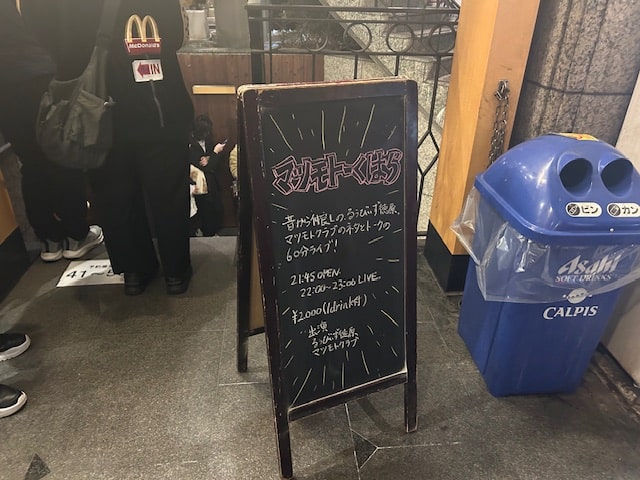 McDonald's
IN
マツモトーくはら
昔から仲良しの、るうびいず徳原、
マツモトクラブのネタとトークの
60分ライブ!
21:45 OPEN
22:00~23:00 LIVE
¥2000(1drink付)
出演
るうびいず徳原
マツモトクラブ
ビン
カン
Asahi
SOFT DRINKS
CALPIS